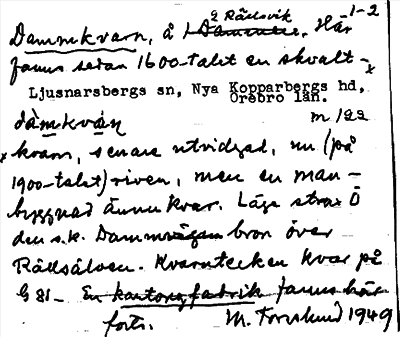 Dammkvarn, å 1 Dammen. Här 1-2
g Rällsvik
fanns sedan 1600-talet en skvalt-
Ljusnarsbergs sn, Nya Kopparbergs hd,
Örebro län.
dàmkván m 122
x kvarn, senare utvidgad, nu (på
1900-talet) riven, men en man-
byggnad ännu kvar. Läge strax Ö
den s.k. Dammvägen bron över
Rällsälven. Kvarntecken kvar på
G 81- En kartongfabrik fanns här
forts. M. Tornlund 1949